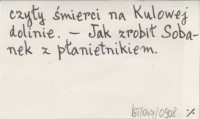 czyły śmierci na Kulowej
dolinie. – Jak zrobił Soba-
nek z płanietnikiem.